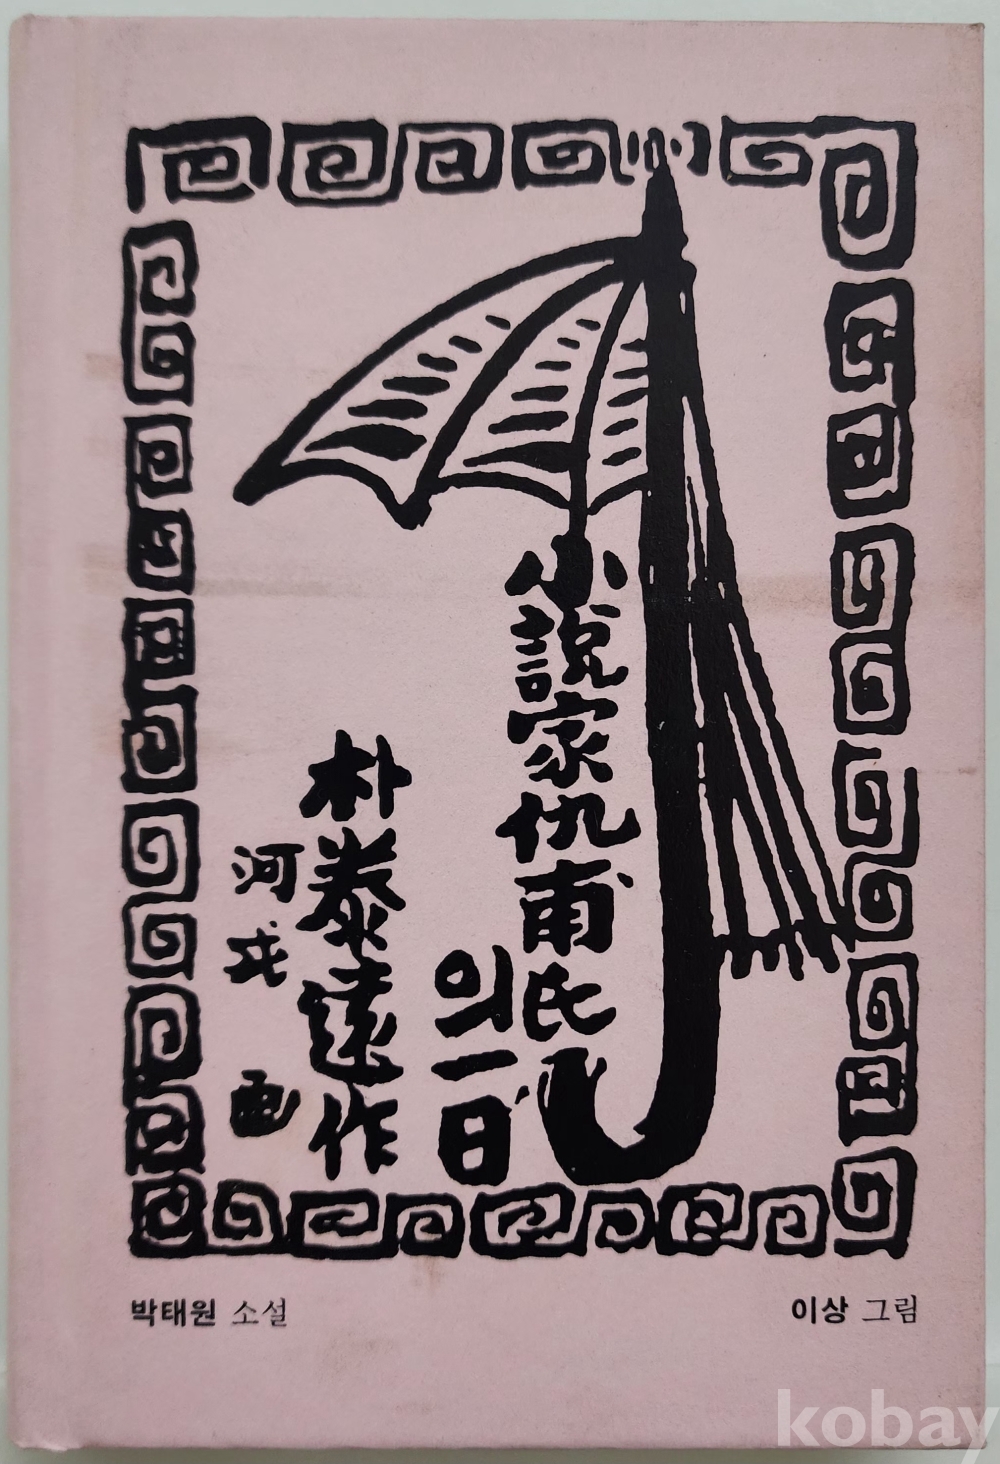 小說家仇甫氏
의一日
朴泰遠作
河戎 画
박태원 소설
이상 그림
kobay